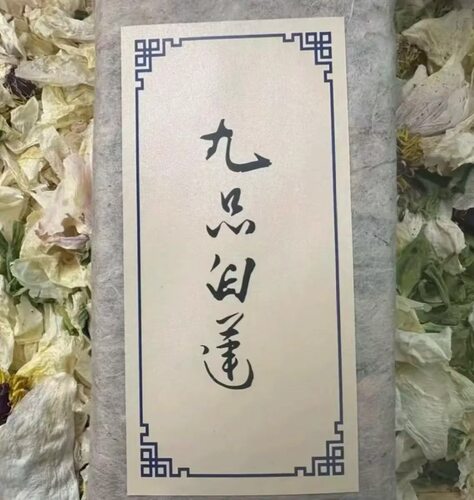 九品白莲